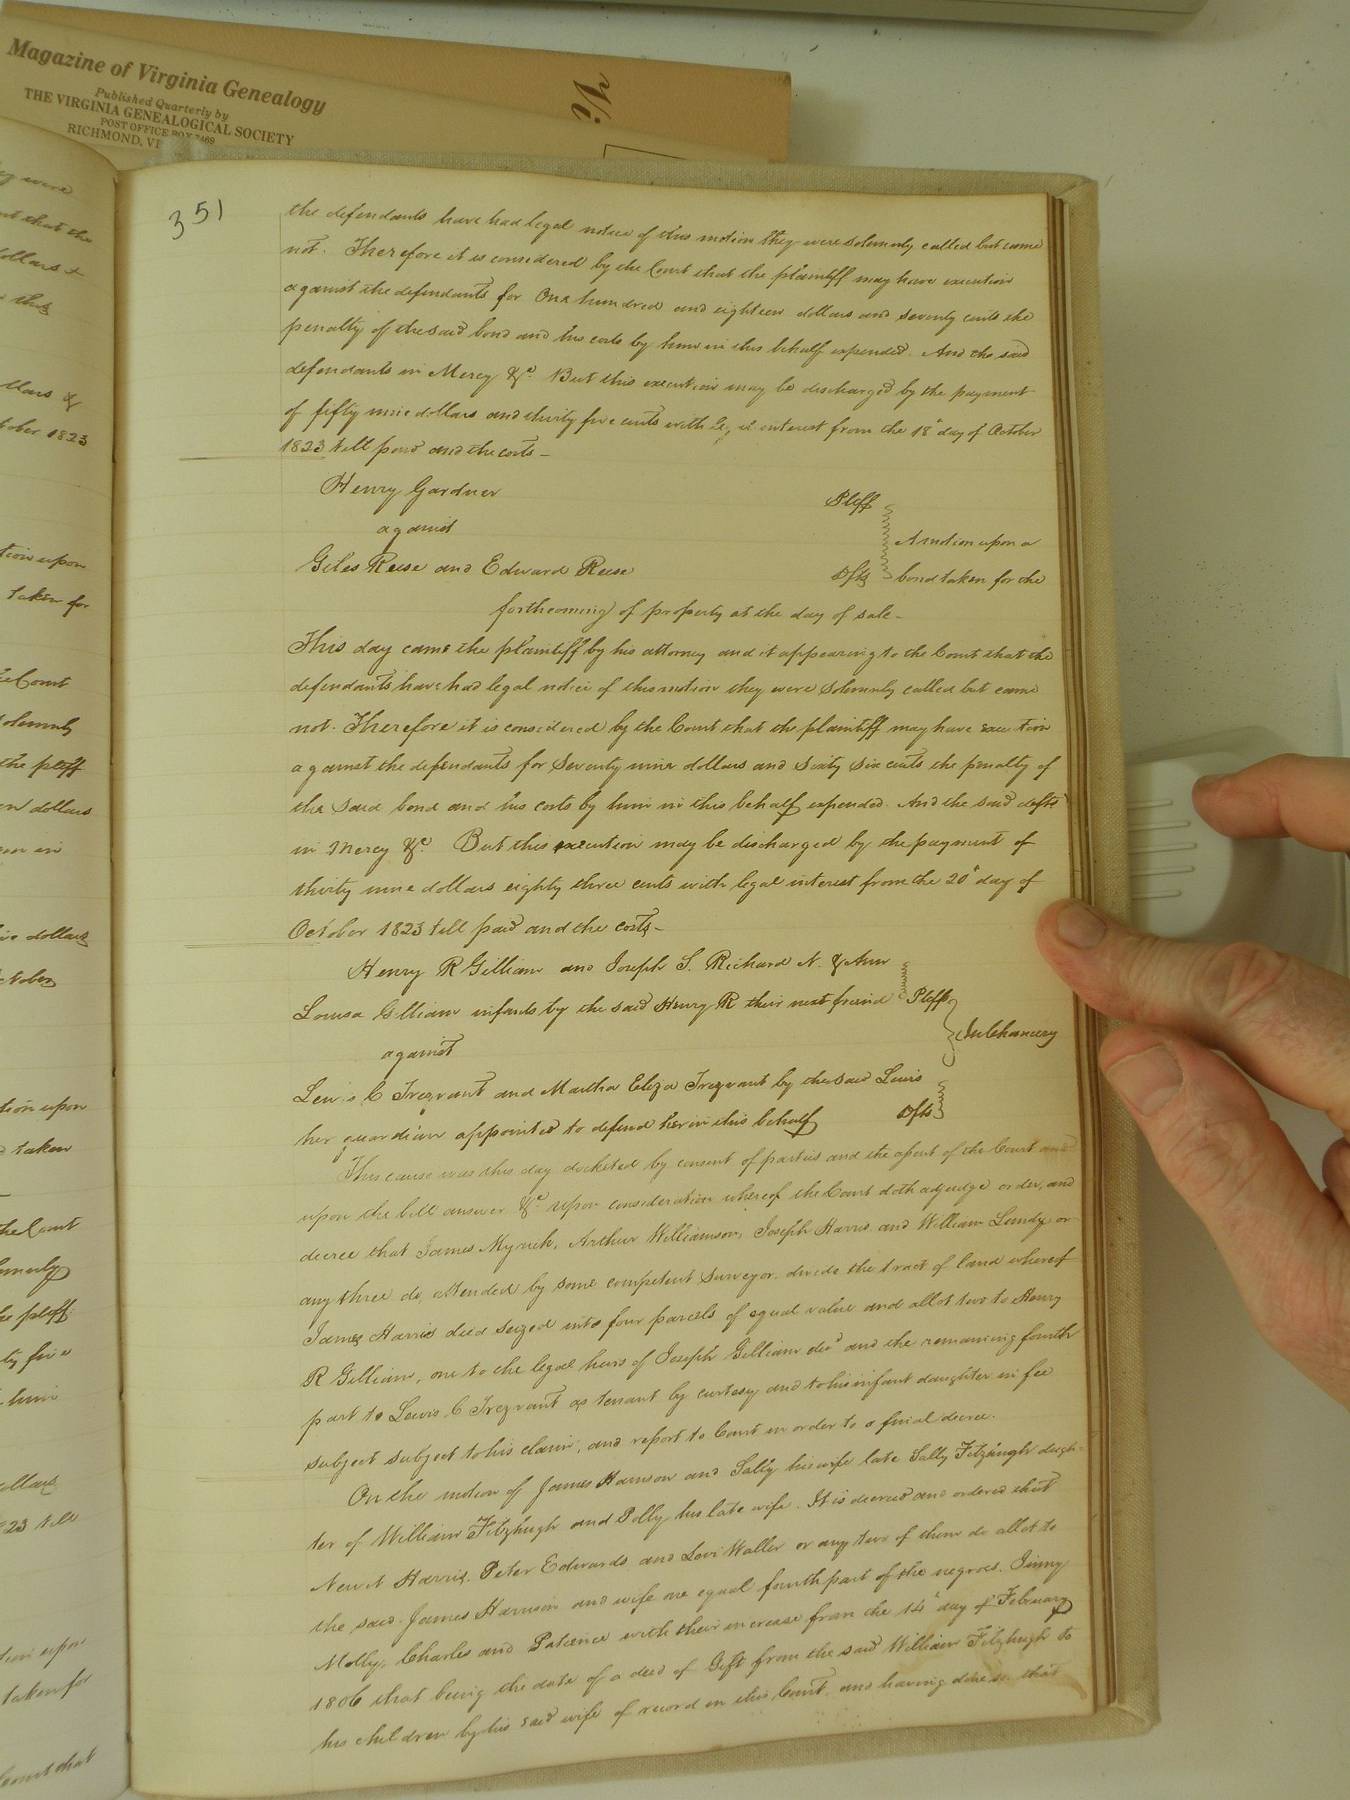 Magazine of Virginia Genealogy
Published Quarterly by
THE VIRGINIA GENEALOGICAL SOCIETY
POST OFFICE BOX 7469
RICHMOND, VI
351
the defendants have had legal notice of this motion they were solemnly called but came
not. Therefore it is considered by the Court that the plaintiff may have execution
against the defendants for One hundred and eighteen dollars and seventy cents the
penalty of the said bond and his costs by him in this behalf expended. And the said
defendants in Mercy &c. But this execution may be discharged by the payment
of fifty nine dollars and thirty five cents with legal interest from the 18th day of October
1823 till paid and the costs -
Henry Gardner Pltff
against A motion upon a
Giles Reese and Edward Reese Dfts bond taken for the
forthcoming of property at the day of sale -
This day came the plaintiff by his attorney and it appearing to the Court that the
defendants have had legal notice of this motion they were solemnly called but came
not. Therefore it is considered by the Court that the plaintiff may have execution
against the defendants for Seventy nine dollars and sixty six cents the penalty of
the said bond and his costs by him in this behalf expended. And the said defts
in Mercy &c. But this execution may be discharged by the payment of
thirty nine dollars eighty three cents with legal interest from the 20th day of
October 1823 till paid and the costs -
Henry R Gilliam and Joseph S. Richard N. & Ann
Louisa Gilliam infants by the said Henry R their next friend Pltffs
against In Chancery
Lewis C Trezvant and Martha Eliza Trezvant by the said Lewis
her guardian appointed to defend her in this behalf Dfts
This cause was this day docketed by consent of parties and the assent of the Court and
upon the bill answer &c upon consideration whereof the Court doth adjudge order, and
decree that James Myrick, Arthur Williamson, Joseph Harris and William Lundy or
any three do, attended by some competent surveyor, divide the tract of land whereof
James Harris died seized into four parcels of equal value and allot two to Henry
R Gilliam, one to the legal heirs of Joseph Gilliam decd and the remaining fourth
part to Lewis C Trezvant as tenant by curtesy and to his infant daughter in fee
subject subject to his claim, and report to Court in order to a final decree.
On the motion of James Harrison and Sally his wife late Sally Fitzhugh daugh-
ter of William Fitzhugh and Polly his late wife. It is decreed and ordered that
Newit Harris, Peter Edwards and Levi Waller or any two of them do allot to
the said James Harrison and wife one equal fourth part of the negroes. Jinny
Molly, Charles and Patience with their increase from the 14th day of February
1806 that being the date of a deed of Gift from the said William Fitzhugh to
his children by his said wife of record in this Court. and having done so that